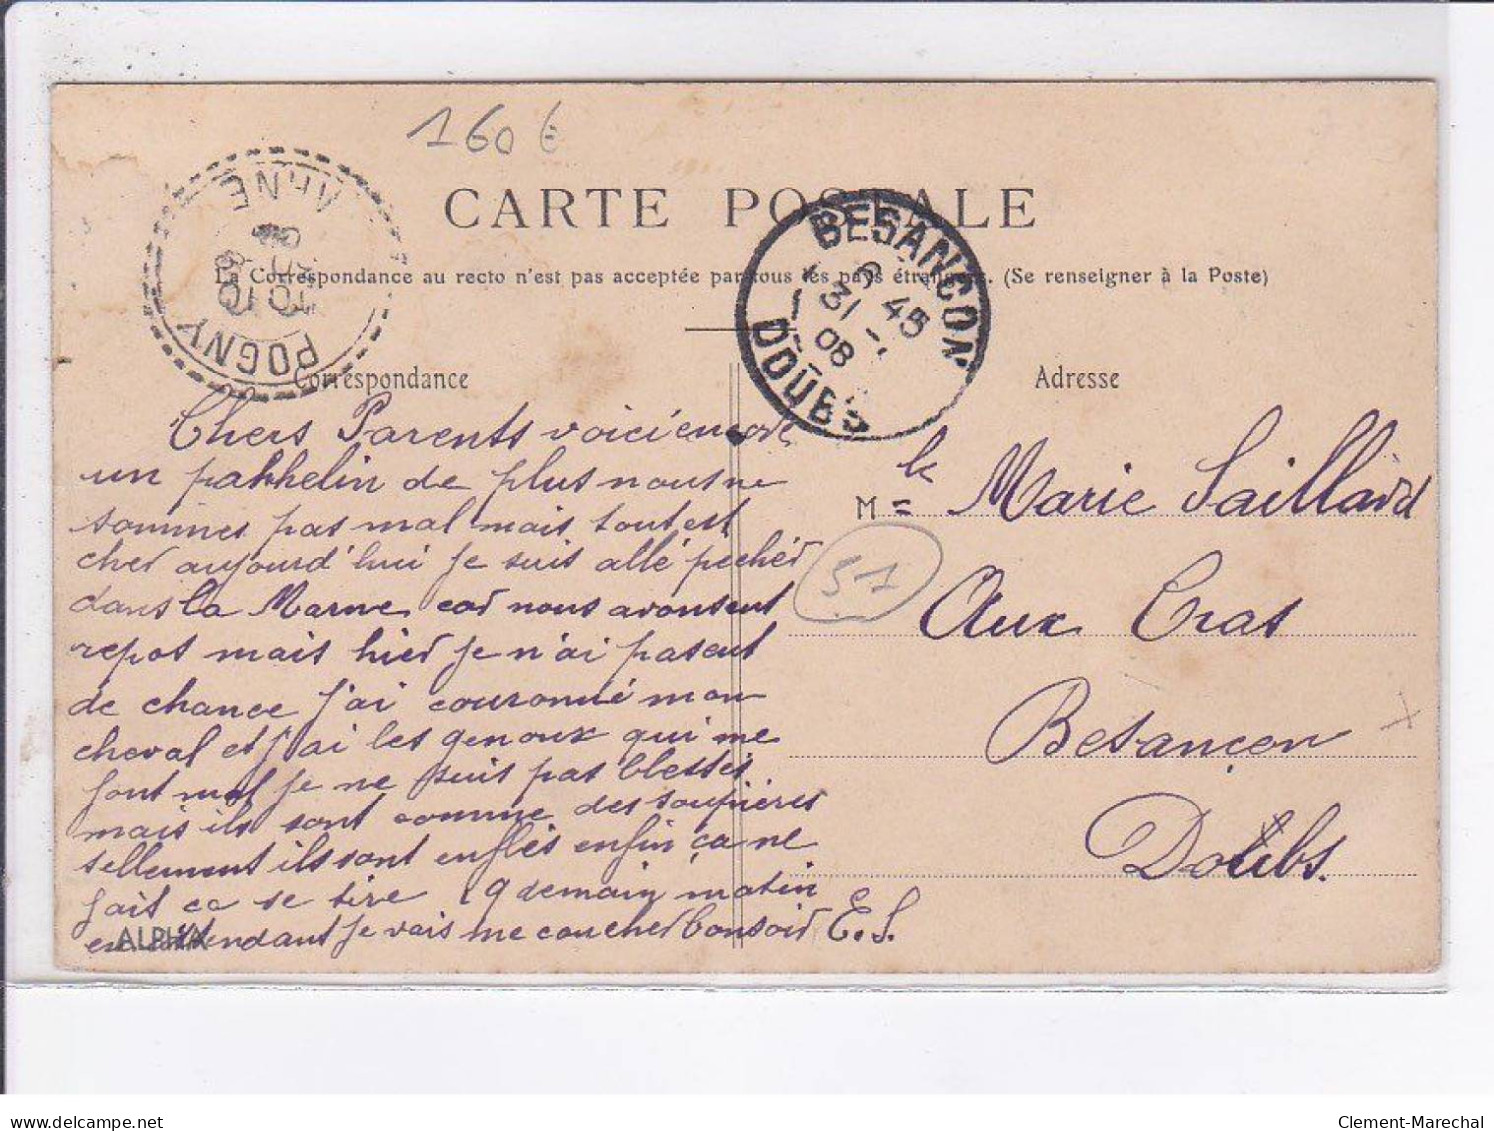 160 €
CARTE POSTALE
La Correspondance au recto n'est pas acceptée par tous les pays étrangers. (Se renseigner à la Poste)
POGNY
MARNE
BESANCON
6 45
31 -
08
DOUBS
Correspondance
Adresse
Chers Parents voici encore
un pakhelin de plus nous ne
sommes pas mal mais tout est
cher aujourd'hui je suis allé pecher
dans la Marne car nous avons eut
repos mais hier je n'ai pas eut
de chance j'ai couronné mon
cheval et j'ai les genoux qui me
font mal je ne suis pas blessés
mais ils sont comme des soupières
tellement ils sont enflés enfin ça ne
fait ca se tire 19 demain matin
en attendant je vais me coucher bonsoir E. S.
ALPHA
M = le Marie Saillard
51
Aux Cras
Besançon
Doubs.
delcampe.net
Clement-Marechal